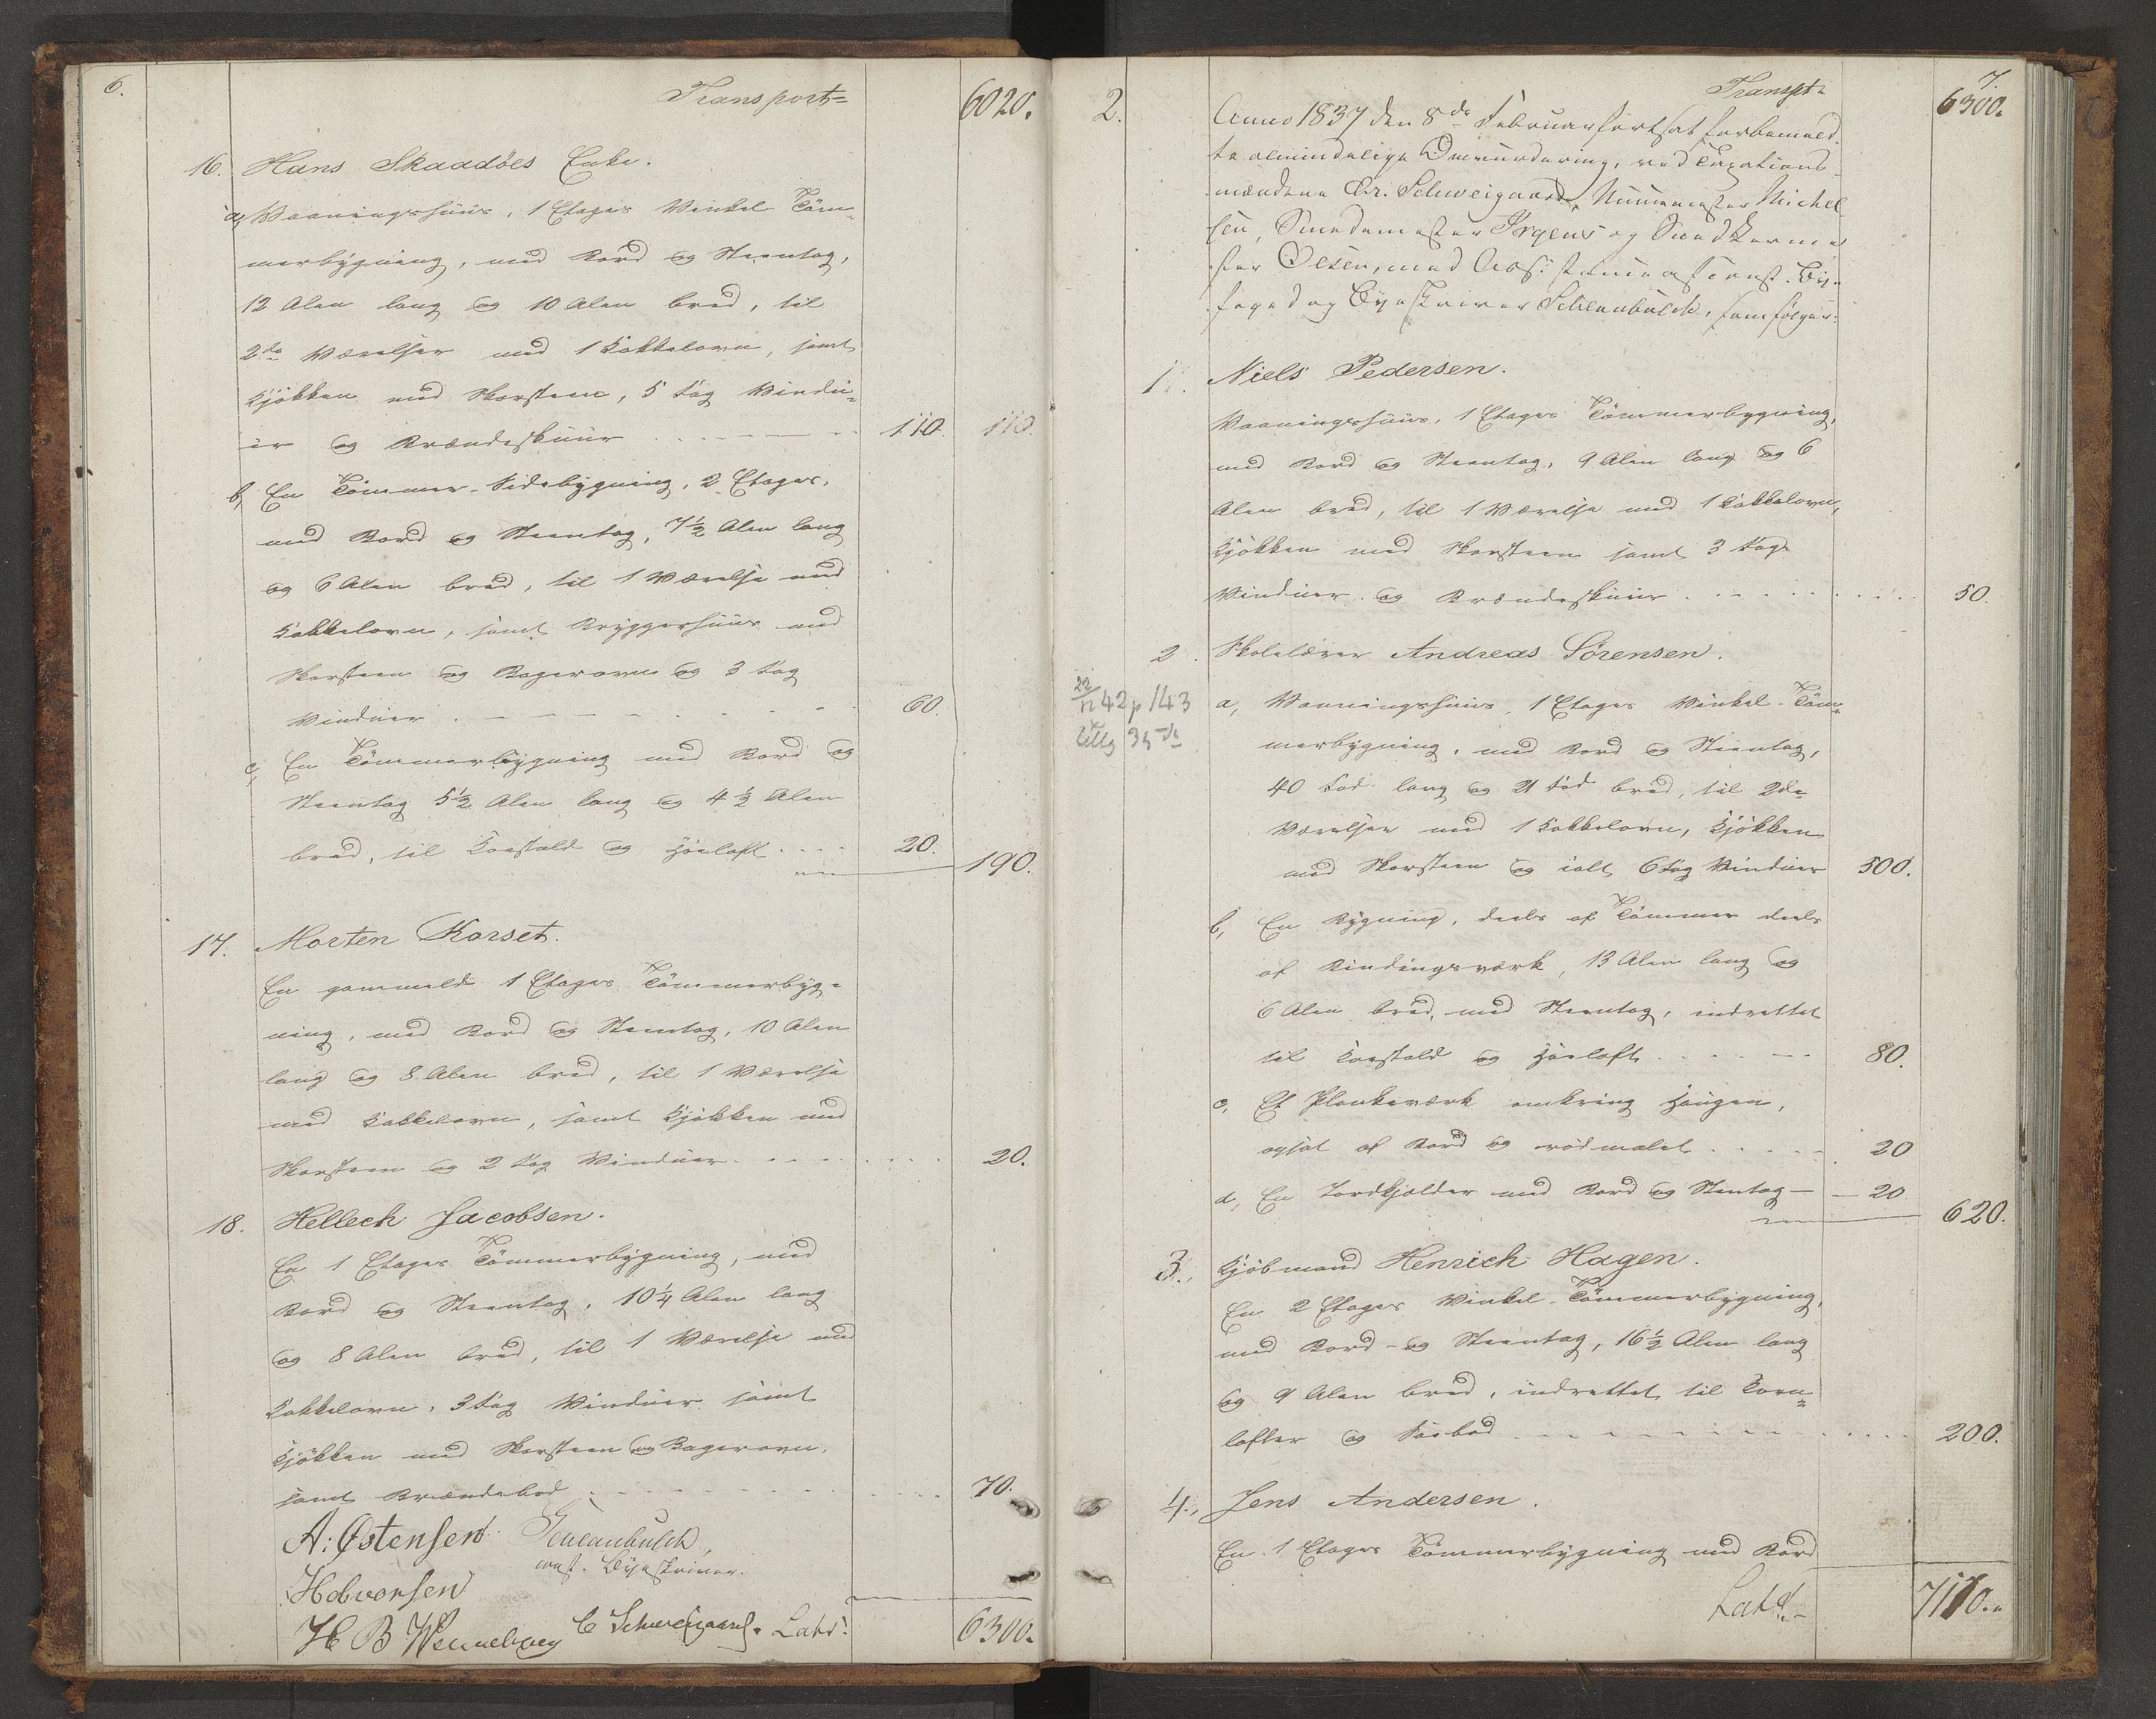 6.
Transport= 6020.
16. Hans Skaadöes Enke.
a, Vaaningshuus, 1 Etages Vinkel Töm-
merbygning, med Bord og Steentag,
12 Alen lang og 10 Alen bred, til
2de Værelser med 1 Kakkelovn, samt
Kjökken med Skorsteen, 5 Fag Vindu-
er og Brændeskuur 110. 110.
b, En Tömmer-Sidebygning, 2 Etages,
med Bord og Steentag, 7½ Alen lang
og 6 Alen bred, til 1 Værelse med
Kakkelovn, samt Bryggerhuus med
Skorsteen og Bagerovn og 3 Fag
Vinduer 60.
c, En Tömmerbygning med Bord og
Steentag 5½ Alen lang og 4½ Alen
bred, til Foestald og Höeloft 20.
190.
17. Morten Korset.
En gammelds 1 Etages Tömmerbyg-
ning, med Bord og Steentag, 10 Alen
lang og 8 Alen bred, til 1 Værelse
med Kakkelovn, samt Kjökken med
Skorsteen og 2 Fag Vinduer 20.
18. Hellech Jacobsen.
En 1 Etages Tömmerbygning, med
Bord og Steentag, 10¼ Alen lang
og 8 Alen bred, til 1 Værelse med
Kakkelovn, 3 Fag Vinduer samt
Kjökken med Skorsteen og Bagerovn,
samt Brændebod 70.
A: Østensen Schlanbusch,
const. Byeskriver.
Halvorsen
H B Wenneberg C Schweigaard. Lats: 6300.
7.
Transpt= 6300.
2. Anno 1837 den 8de Februar fortsat forbemeld-
te almindelige Omvurdering, ved Taxations-
mændene Chr. Schweigaard, Muurmester Michel-
sen, Smedemester Irgens og Snedkerme-
ster Olsen, med Assistence af const. By-
foged og Byeskriver Schlanbusch, som følger:
1. Niels Pedersen.
Vaaningshuus, 1 Etages Tömmerbygning,
med Bord og Steentag, 9 Alen lang og 6
Alen bred, til 1 Værelse med 1 Kakkelovn,
Kjökken med Skorsteen samt 3 Fags
Vinduer og Brændeskuur 50.
2. Skolelærer Andreas Sörensen.
22/11 42 p 143
a, Vaaningshuus, 1 Etages Vinkel-Töm-
merbygning, med Bord og Steentag,
40 Fod lang og 21 Fod bred, til 2de
Værelser med 1 Kakkelovn, Kjökken
med Skorsteen og ialt 6 Fag Vinduer 500.
b, En Bygning, deels af Tömmer deels
af Bindingsværk, 13 Alen lang og
6 Alen bred, med Steentag, indrettet
til Foestald og Höeloft 80.
c, Et Plankeværk omkring Haugen,
opsat af Bord og rödmalet 20
d, En Jordkjelder med Bord og Stentag 20
620.
3., Kjöbmand Henrich Hagen.
En 2 Etages Vinkel-Tömmerbygning,
med Bord- og Steentag, 16½ Alen lang
og 9 Alen bred, indrettet til Korn-
lofter og Söebod 200.
4., Jens Andersen.
En 1 Etages Tömmerbygning med Bord
Lats 7170.